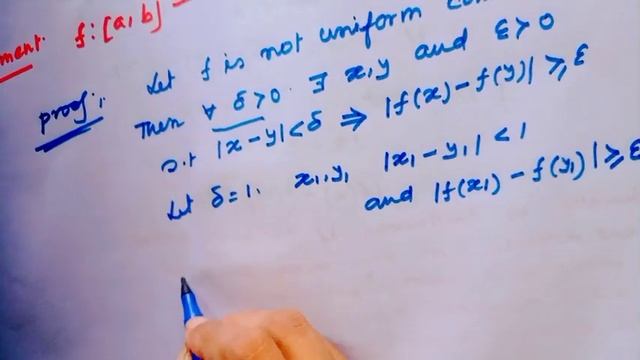 f:[a,b]
proof:, Let f is not uniform
Then ∀ δ>0 ∃ x,y and ε>0
s.t |x-y|<δ ⇒ |f(x)-f(y)| ≥ ε
Let δ=1. x₁,y₁ |x₁-y₁|<1
and |f(x₁)-f(y₁)| ≥ ε